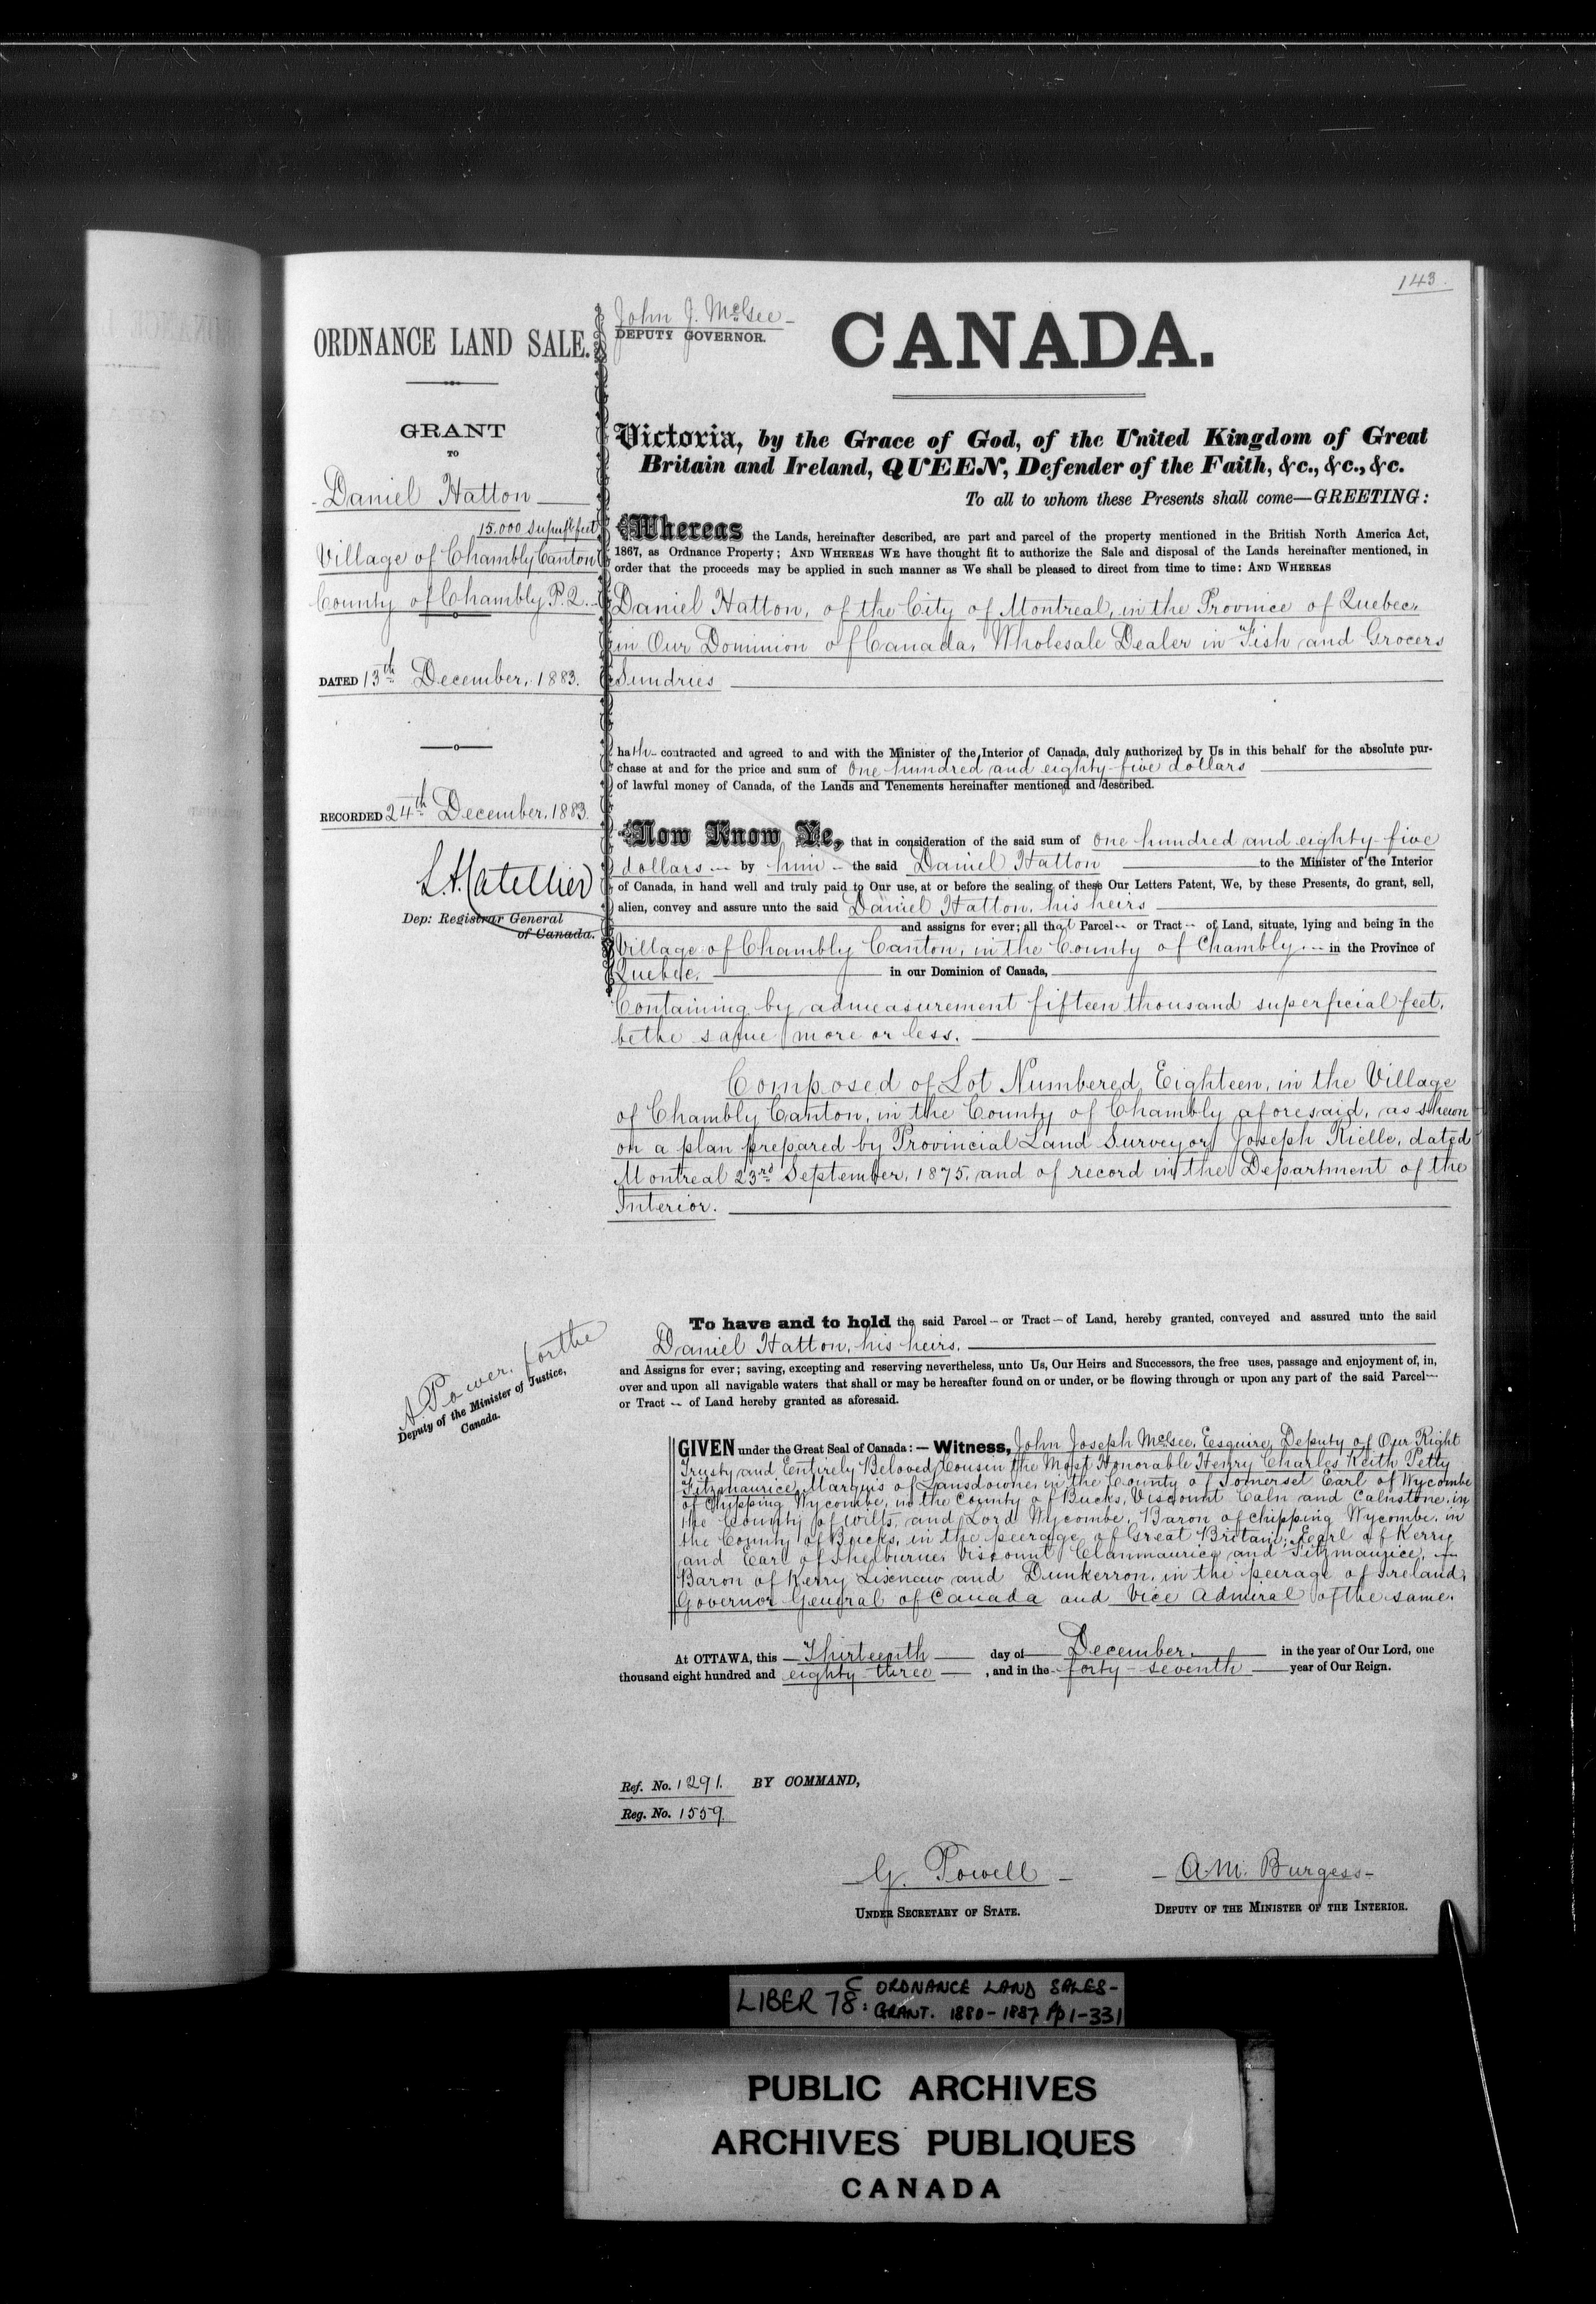 143.
ORDNANCE LAND SALE.
GRANT
TO
Daniel Hatton
15.000 Superfl feet
Village of Chambly Canton
County of Chambly P.Q.
DATED 13th December, 1883.
RECORDED 24th December, 1883.
Dep: Registrar General
of Canada.
A Power, for the
Deputy of the Minister of Justice,
Canada.
John J. McGee
DEPUTY GOVERNOR.
CANADA.
Victoria, by the Grace of God, of the United Kingdom of Great
Britain and Ireland, QUEEN, Defender of the Faith, &c., &c., &c.
To all to whom these Presents shall come—GREETING:
Whereas the Lands, hereinafter described, are part and parcel of the property mentioned in the British North America Act,
1867, as Ordnance Property; AND WHEREAS WE have thought fit to authorize the Sale and disposal of the Lands hereinafter mentioned, in
order that the proceeds may be applied in such manner as We shall be pleased to direct from time to time: AND WHEREAS
Daniel Hatton, of the City of Montreal, in the Province of Quebec,
in Our Dominion of Canada, Wholesale Dealer in Fish and Grocers
Sundries
hath contracted and agreed to and with the Minister of the Interior of Canada, duly authorized by Us in this behalf for the absolute pur-
chase at and for the price and sum of One hundred and eighty-five dollars
of lawful money of Canada, of the Lands and Tenements hereinafter mentioned and described.
Now Know Ye, that in consideration of the said sum of one hundred and eighty-five
dollars by him the said Daniel Hatton to the Minister of the Interior
of Canada, in hand well and truly paid to Our use, at or before the sealing of these Our Letters Patent, We, by these Presents, do grant, sell,
alien, convey and assure unto the said Daniel Hatton, his heirs
and assigns for ever; all that Parcel or Tract of Land, situate, lying and being in the
Village of Chambly Canton, in the County of Chambly in the Province of
Quebec, in our Dominion of Canada,
Containing by admeasurement fifteen thousand superficial feet,
be the same more or less.
Composed of Lot Numbered Eighteen, in the Village
of Chambly Canton, in the County of Chambly aforesaid, as shewn
on a plan prepared by Provincial Land Surveyor Joseph Rielle, dated
Montreal 23rd September, 1875, and of record in the Department of the
Interior.
To have and to hold the said Parcel or Tract of Land, hereby granted, conveyed and assured unto the said
Daniel Hatton, his heirs,
and Assigns for ever; saving, excepting and reserving nevertheless, unto Us, Our Heirs and Successors, the free uses, passage and enjoyment of, in,
over and upon all navigable waters that shall or may be hereafter found on or under, or be flowing through or upon any part of the said Parcel
or Tract of Land hereby granted as aforesaid.
GIVEN under the Great Seal of Canada:— Witness, John Joseph McGee, Esquire, Deputy of Our Right
Trusty and Entirely Beloved Cousin the Most Honorable Henry Charles Keith Petty
Fitzmaurice, Marquis of Lansdowne, in the County of Somerset Earl of Wycombe
of Chipping Wycombe, in the County of Bucks, Viscount Caln and Calnstone, in
the County of Wilts, and Lord Wycombe, Baron of Chipping Wycombe, in
the County of Bucks, in the peerage of Great Britain; Earl of Kerry
and Earl of Shelburne, Viscount Clanmaurice and Fitzmaurice,
Baron of Kerry Lixnaw and Dunkerron, in the peerage of Ireland,
Governor General of Canada and Vice Admiral of the same.
At OTTAWA, this Thirteenth day of December, in the year of Our Lord, one
thousand eight hundred and eighty-three, and in the forty-seventh year of Our Reign.
Ref. No. 1291. BY COMMAND,
Reg. No. 1559.
G. Powell
UNDER SECRETARY OF STATE.
A. M. Burgess
DEPUTY OF THE MINISTER OF THE INTERIOR.
LIBER 78C: ORDNANCE LAND SALES-
GRANT. 1880-1887 pp 1-331
PUBLIC ARCHIVES
ARCHIVES PUBLIQUES
CANADA